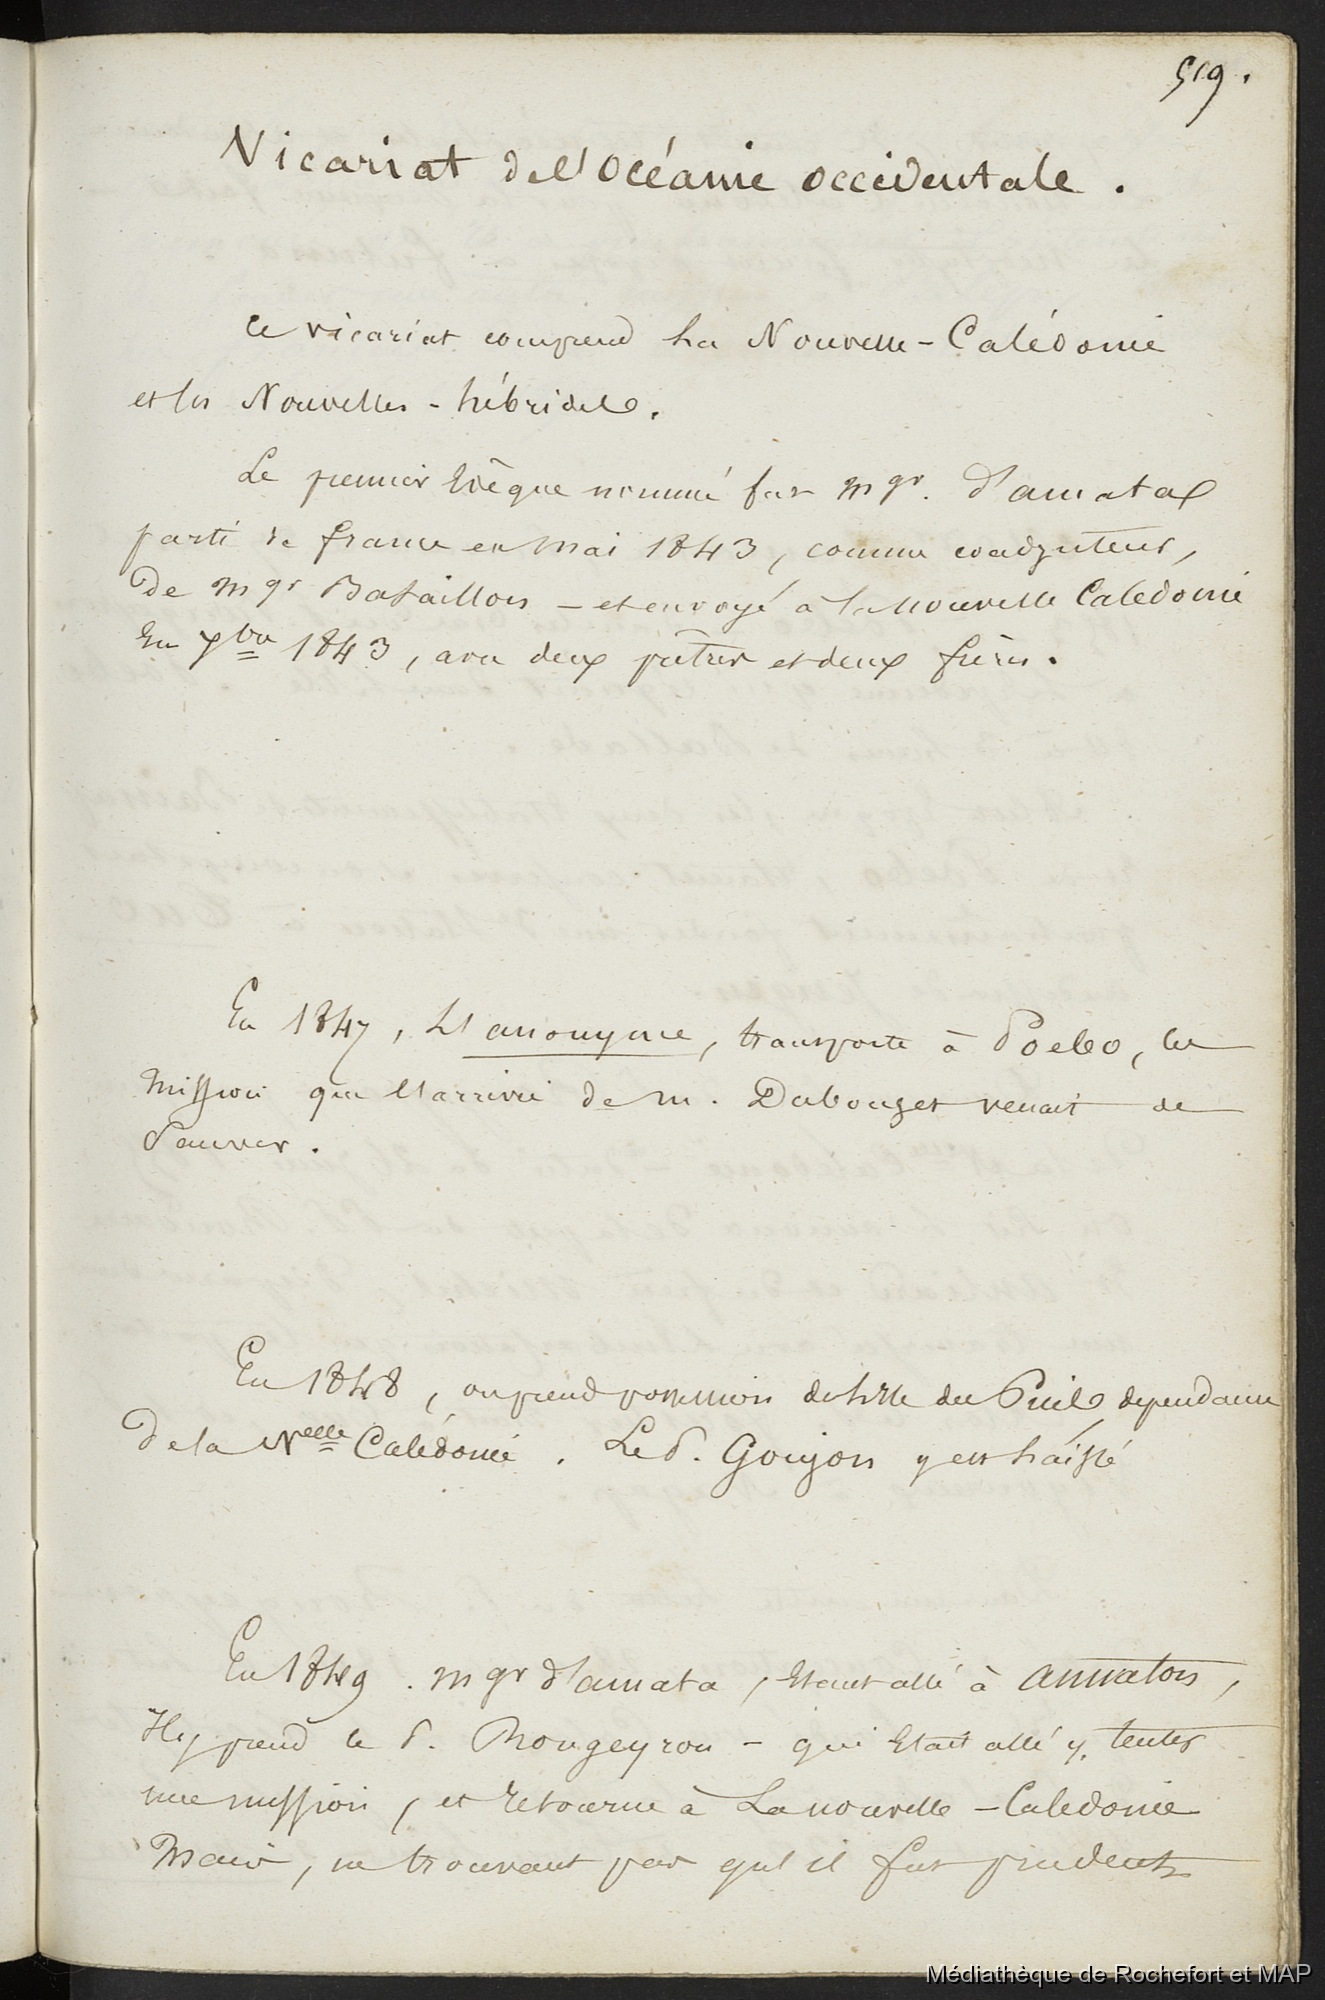 519.
Vicariat de l'Océanie occidentale.
Ce vicariat comprend la Nouvelle-Calédonie
et les Nouvelles-hébrides.
Le premier Evêque nommé fut mgr. d'amata
parti de france en mai 1843, comme coadjuteur,
De mgr Bataillon – et envoyé à la nouvelle Calédonie
En Xbre 1843, avec deux prêtres et deux frères.
En 1847, L'anonyme, transporte à Poebo, la
mission que l'arrivée de m. Dubouzet venait de
Sauver.
En 1848, on prend possession de l'île des Pins, dépendance
De la Nelle Calédonie. Le P. Goujon y est laissé
En 1849. mgr d'amata, étant allé à annatom,
Il y prend le P. Rougeyron – qui était allé y tenter
une mission, et retourne à La nouvelle-Calédonie
Mais, ne trouvant pas qu'il fut prudent
Médiathèque de Rochefort et MAP